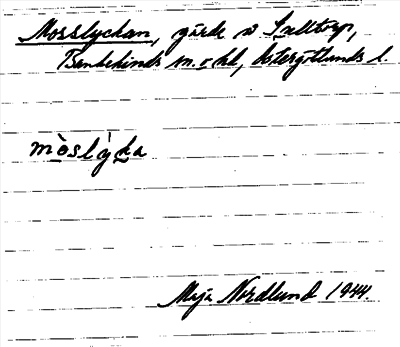 Mosslyckan, gärde v Salltorp,
Bankekinds sn. o hd, Östergötlands l.
mòslỳka
Maja Nordlund 1944.